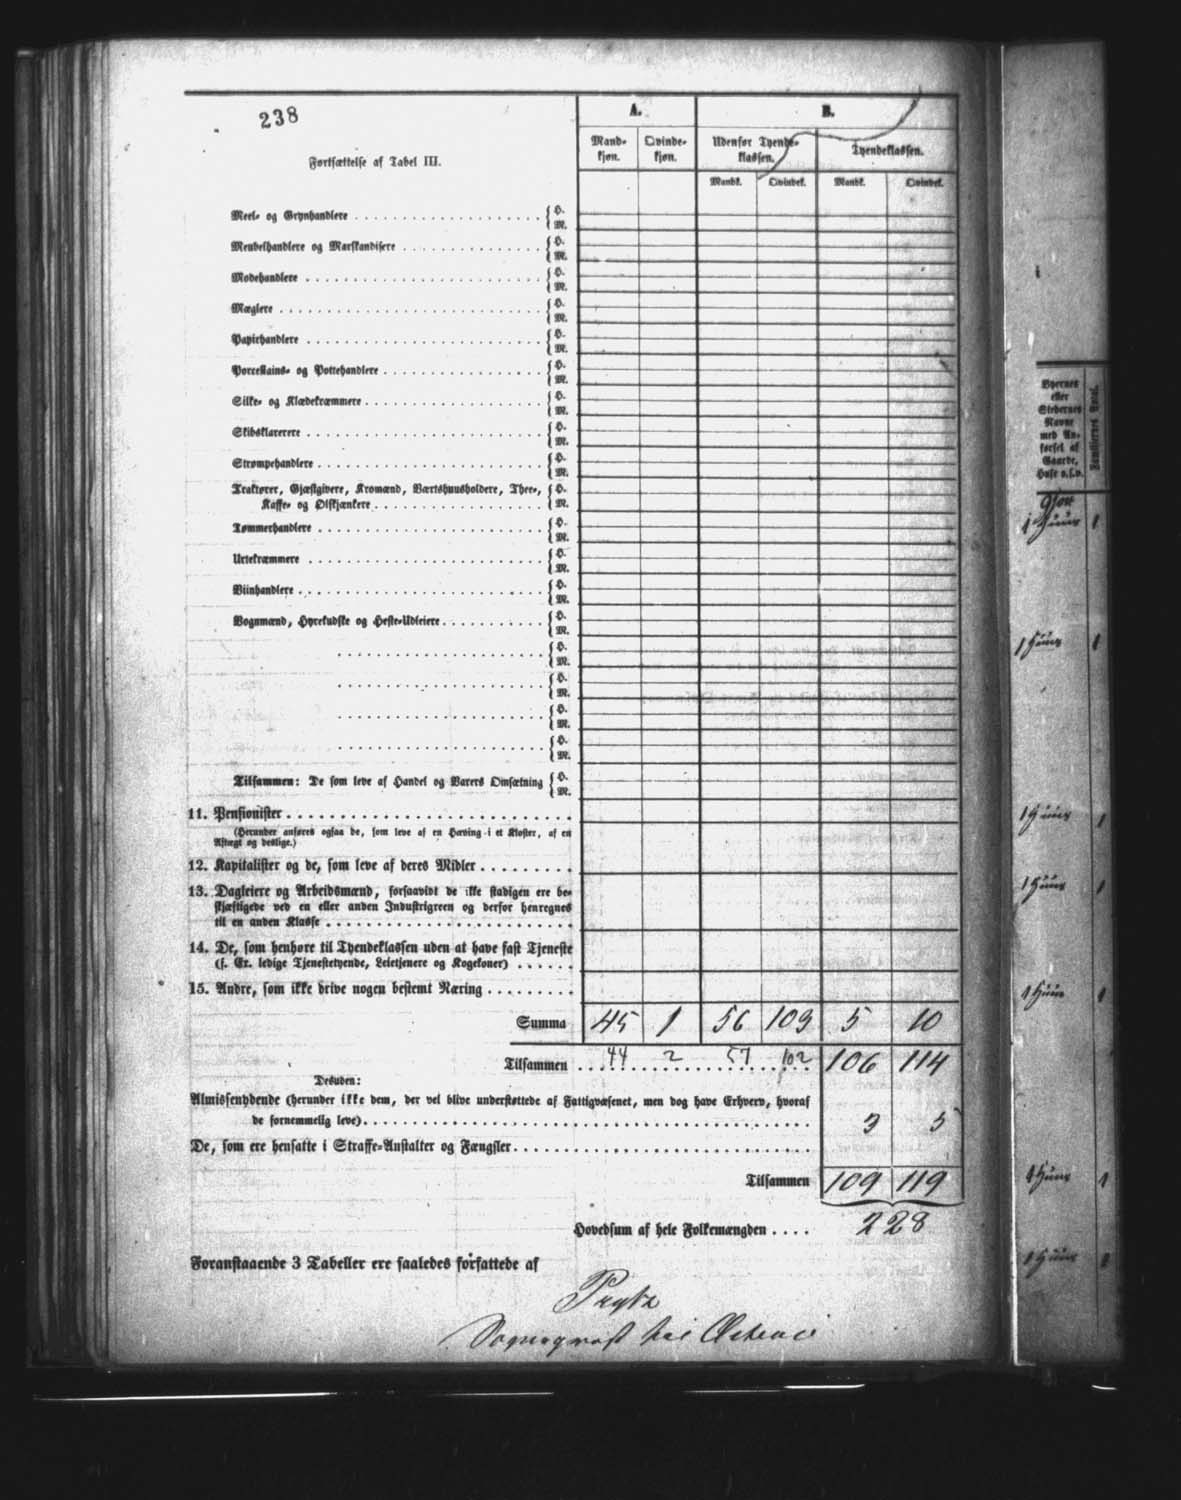 238
Fortsættelse af Tabel III.
A. B.
Mand- Qvinde- Udenfor Tyende- Tyendeklassen.
kjøn. kjøn. klassen.
Mandk. Qvindek. Mandk. Qvindek.
Meel- og Grynhandlere { H.
M.
Meubelhandlere og Marskandisere { H.
M.
Modehandlere { H.
M.
Mæglere { H.
M.
Papirhandlere { H.
M.
Porcellains- og Pottehandlere { H.
M.
Silke- og Klædekræmmere { H.
M.
Skibsklarerere { H.
M.
Strømpehandlere { H.
M.
Traktører, Gjæstgivere, Kromænd, Værtshuusholdere, Thee-, { H.
Kaffe- og Ølskjænkere { M.
Tømmerhandlere { H.
M.
Urtekræmmere { H.
M.
Viinhandlere { H.
M.
Vognmænd, Hyrekudske og Heste-Udleiere { H.
M.
{ H.
M.
{ H.
M.
{ H.
M.
{ H.
M.
Tilsammen: De som leve af Handel og Varers Omsætning { H.
M.
11. Pensionister
(Herunder anføres ogsaa de, som leve af en Hæving i et Kloster, af en
Aftægt og deslige.)
12. Kapitalister og de, som leve af deres Midler
13. Dagleiere og Arbeidsmænd, forsaavidt de ikke stadigen ere be-
skjæftigede ved en eller anden Industrigreen og derfor henregnes
til en anden Klasse
14. De, som henhøre til Tyendeklassen uden at have fast Tjeneste
(f. Ex. ledige Tjenestetyende, Leietjenere og Kogekoner)
15. Andre, som ikke drive nogen bestemt Næring
Summa 45 1 56 103 5 10
Tilsammen 44 2 57 102 106 114
Desuden:
Almissenydende (herunder ikke dem, der vel blive understøttede af Fattigvæsenet, men dog have Erhverv, hvoraf
de fornemmelig leve) 3 5
De, som ere hensatte i Straffe-Anstalter og Fængsler
Tilsammen 109 119
Hovedsum af hele Folkemængden 228
Foranstaaende 3 Tabeller ere saaledes forfattede af
Prytz
Sognepræst
Byernes
eller
Stedernes
Navne
med An-
førsel af
Gaarde,
Huse o.s.v.
Familiernes Antal.
1 Huus 1
1 Huus 1
1 Huus 1
1 Huus 1
1 Huus 1
1 Huus 1
1 Huus 1